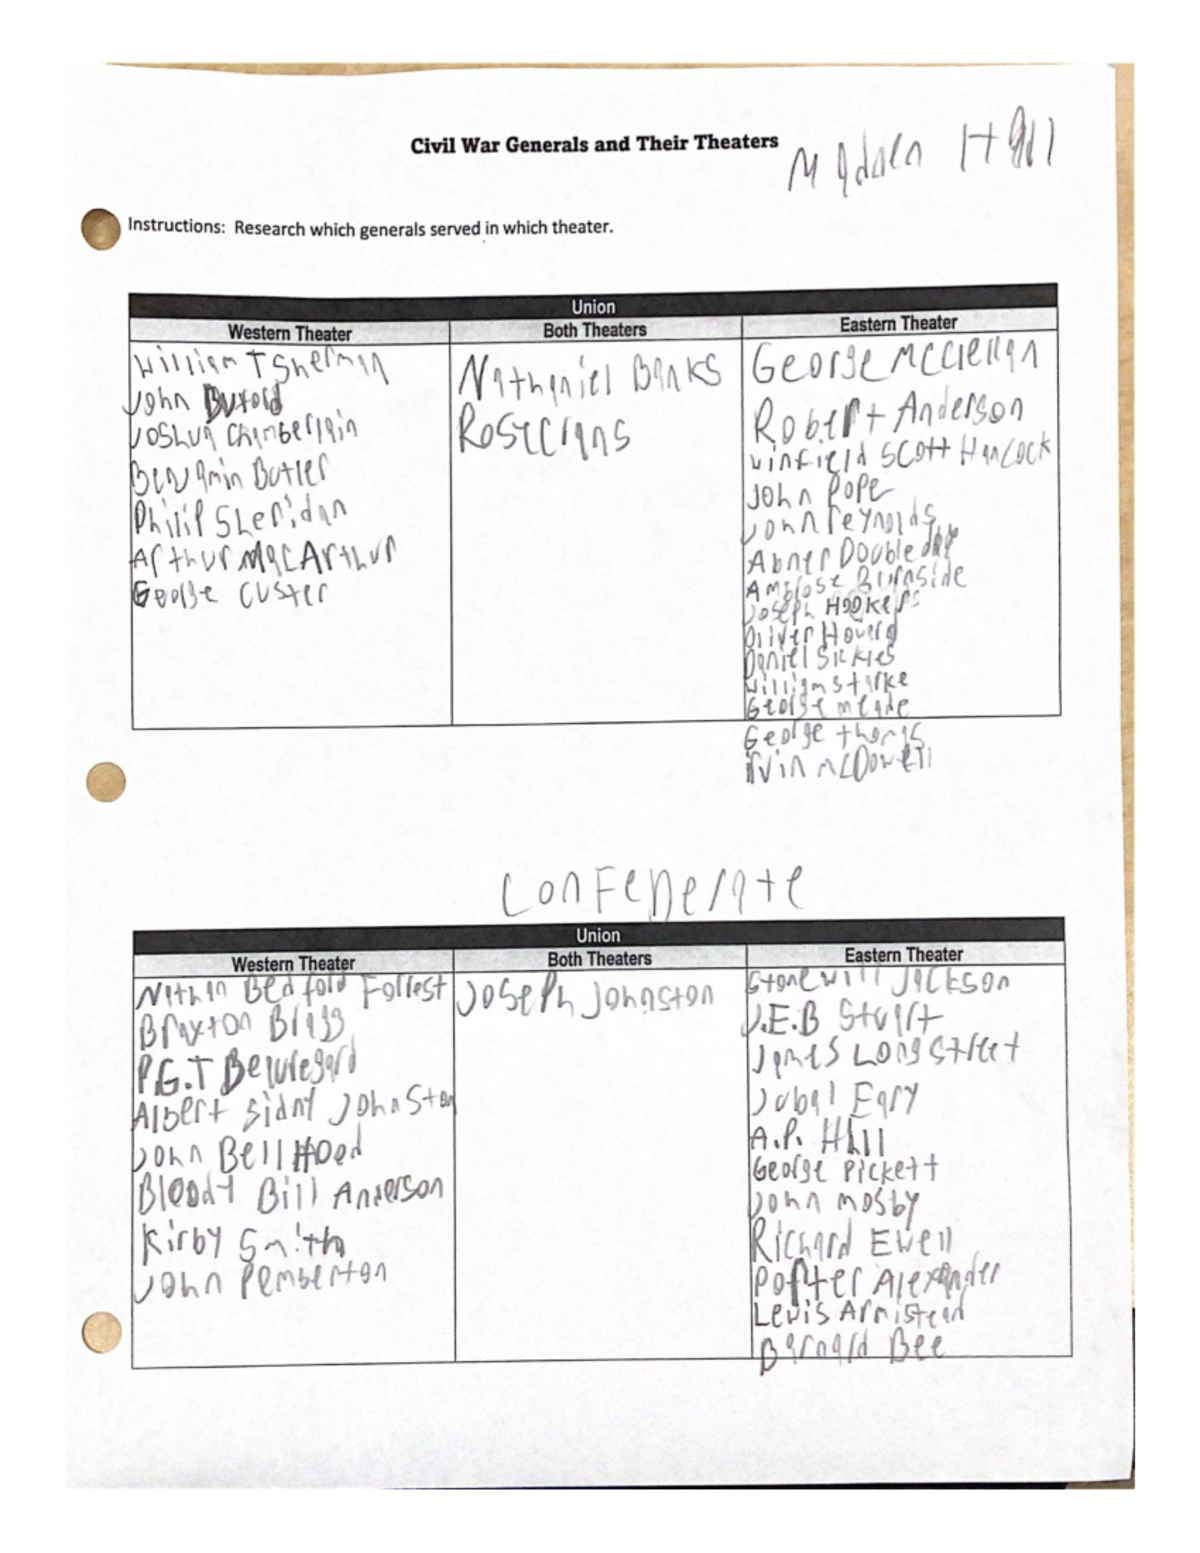 Civil War Generals and Their Theaters
Madden Hall
Instructions: Research which generals served in which theater.
Union
Western Theater
Both Theaters
Eastern Theater
William T Sherman
John Buford
Joshua Chamberlain
Benjamin Butler
Philip Sheridan
Arthur MacArthur
George Custer
Nathaniel Banks
Rosecrans
George McClellan
Robert Anderson
Winfield Scott Hancock
John Pope
John Reynolds
Abner Doubleday
Ambrose Burnside
Joseph Hookers
Oliver Howard
Daniel Sickles
William Starke
George Meade
George Thomas
Irvin McDowell
Confederate
Union
Western Theater
Both Theaters
Eastern Theater
Nathan Bedford Forrest
Braxton Bragg
P.G.T Beauregard
Albert Sidny Johnston
John Bell Hood
Bloody Bill Anderson
Kirby Smith
John Pemberton
Joseph Johnston
Stonewall Jackson
J.E.B Stuart
James Longstreet
Jubal Early
A.P. Hill
George Pickett
John Mosby
Richard Ewell
Porter Alexander
Lewis Armistead
Barnard Bee